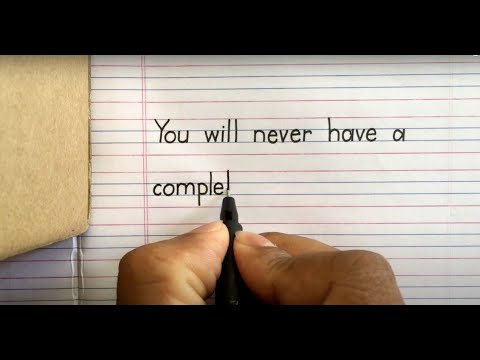 You will never have a
comple